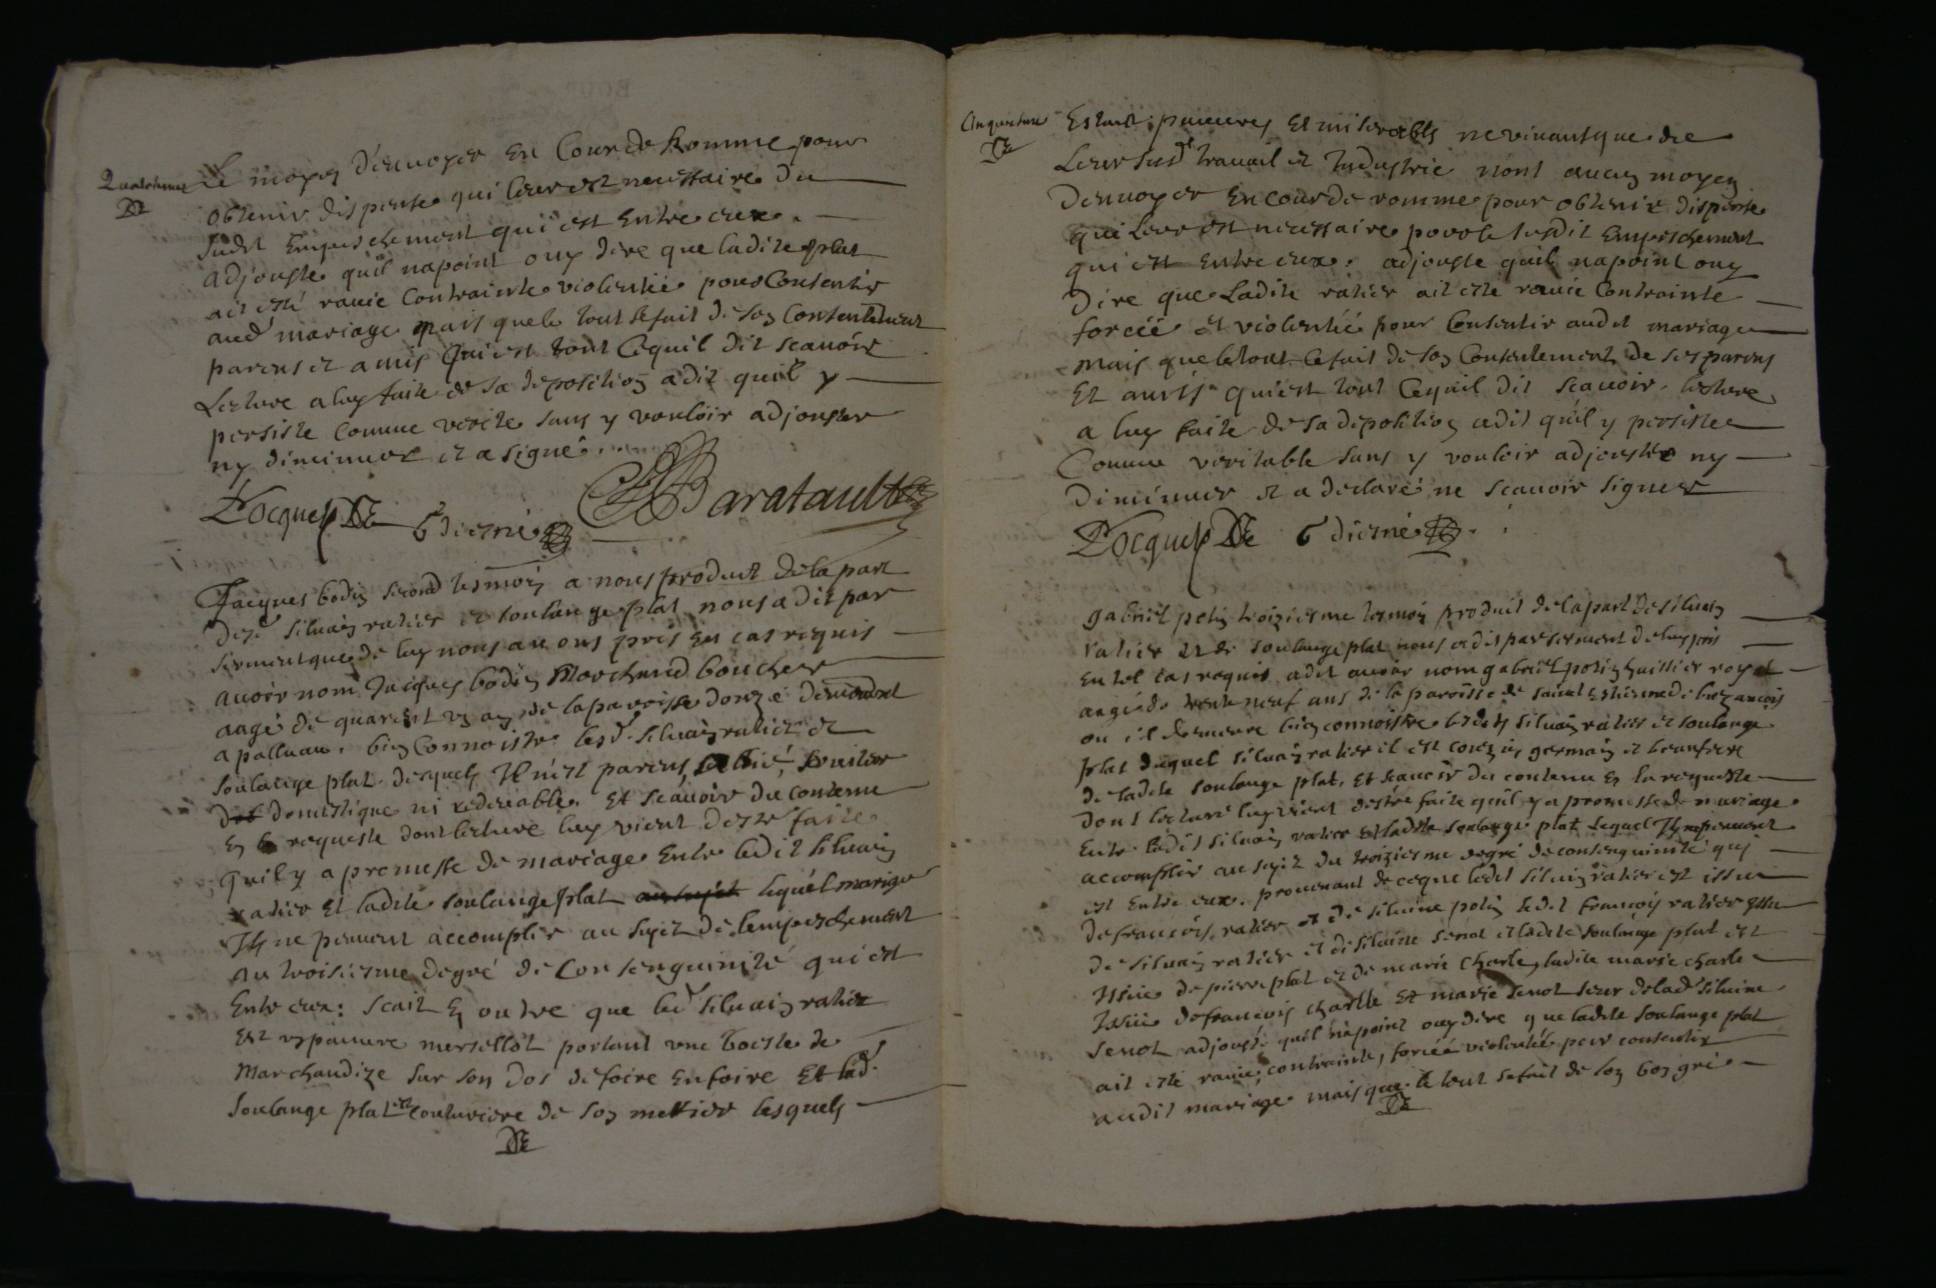 Quatriesme
le moyen d'enuoyer en Cour de Romme pour
obtenir dispense qui leur est necessaire du
sudt Empeschement qui est Entre eux.
adjouste qu'il napoint ouy dire que ladite plat
ait esté rauie Contrainte violentée pour Consentir
aud mariage mais que le tout se fait de son Consentement
parens et amis Qui est tout Cequil dit scauoir
Lecture a luy faite de sa deposition a dit quil y
persiste Comme verite sans y vouloir adjouster
ny diminuer et a signé.
Baratault
Jacques bodin second tesmoin a nous produit de la part
desd siluain ratier et soulange plat nous a dit par
serment que de luy nous auons pris en cas requis
auoir nom Jacques bodin Marchand boucher
aagé de quarent un an de la paroisse donzé demeurant
a palluau. bien Connoistre lesd. siluain ratier et
soulange plat desquels Il n'est parens, allié, seruiteur
domestique ni redeuable. Et scauoir du contenu
en la requeste dont lecture luy vient destre faite
quil y a promesse de mariage Entre ledit siluain
ratier Et ladite soulange plat lequel mariage
Ils ne peuuent accomplir au sujet de lempeschement
au troisiesme degré de Consenguinité qui est
Entre eux: scait En outre que led siluain ratier
Est un pauure mersellot portant une boiste de
Marchandize sur son dos de foire en foire Et lad.
soulange plat est Couturiere de son mettier lesquels
Cinquiesme
Estant pauures Et miserables ne viuant que de
Leur susd trauail et Industrie nont aucun moyen
Denuoyer En cour de romme pour obtenir dispense
qui leur est necessaire pour le susdit Empeschement
qui est Entre eux. adjouste quil napoint ouy
dire que Ladite ratier ait esté rauie Contrainte
forcéé et violentéé pour Consentir audit mariage
Mais que le tout se fait de son Consentement de ses parens
Et amis Qui est tout Cequil dit scauoir. lecture
a luy faite de sa deposition a dit quil y persiste
Comme veritable sans y vouloir adjouster ny
diminuer et a declaré ne scauoir signer
gabriel potin troiziesme tesmoin produit de la part de siluain
ratier et de soulange plat nous a dit par serment de luy pris
en tel cas requis a dit auoir nom gabriel potin huissier royal
aagé de trente neuf ans de la paroisse de saint Estienne de buzancois
ou il demeure bien connoistre lesdits siluain ratier et soulange
plat duquel siluain ratier il est cousin germain et beaufrere
de ladite soulange plat, Et scauoir du contenu En la requeste
dont lecture luy vient destre faite quil y a promesse de mariage
Entre ledit siluain ratier et ladite soulange plat lequel Ils ne peuuent
accomplir au sujet du troiziesme degré de consenguinité qui
est Entre eux. prouenant de ceque ledit siluain ratier est issu
de francois ratier et de siluine potin ledit francois ratier issu
de siluain ratier et de siluine senot et ladite soulange plat est
Issue de pierre plat et de marie charle, ladite marie charle
Issue de francois charlle Et marie senot seur de lad siluine
senot adjousté quil napoint ouy dire que ladite soulange plat
ait esté rauie, contrainte, forcéé violentée pour consentir
audit mariage mais que le tout se fait de son bon gré